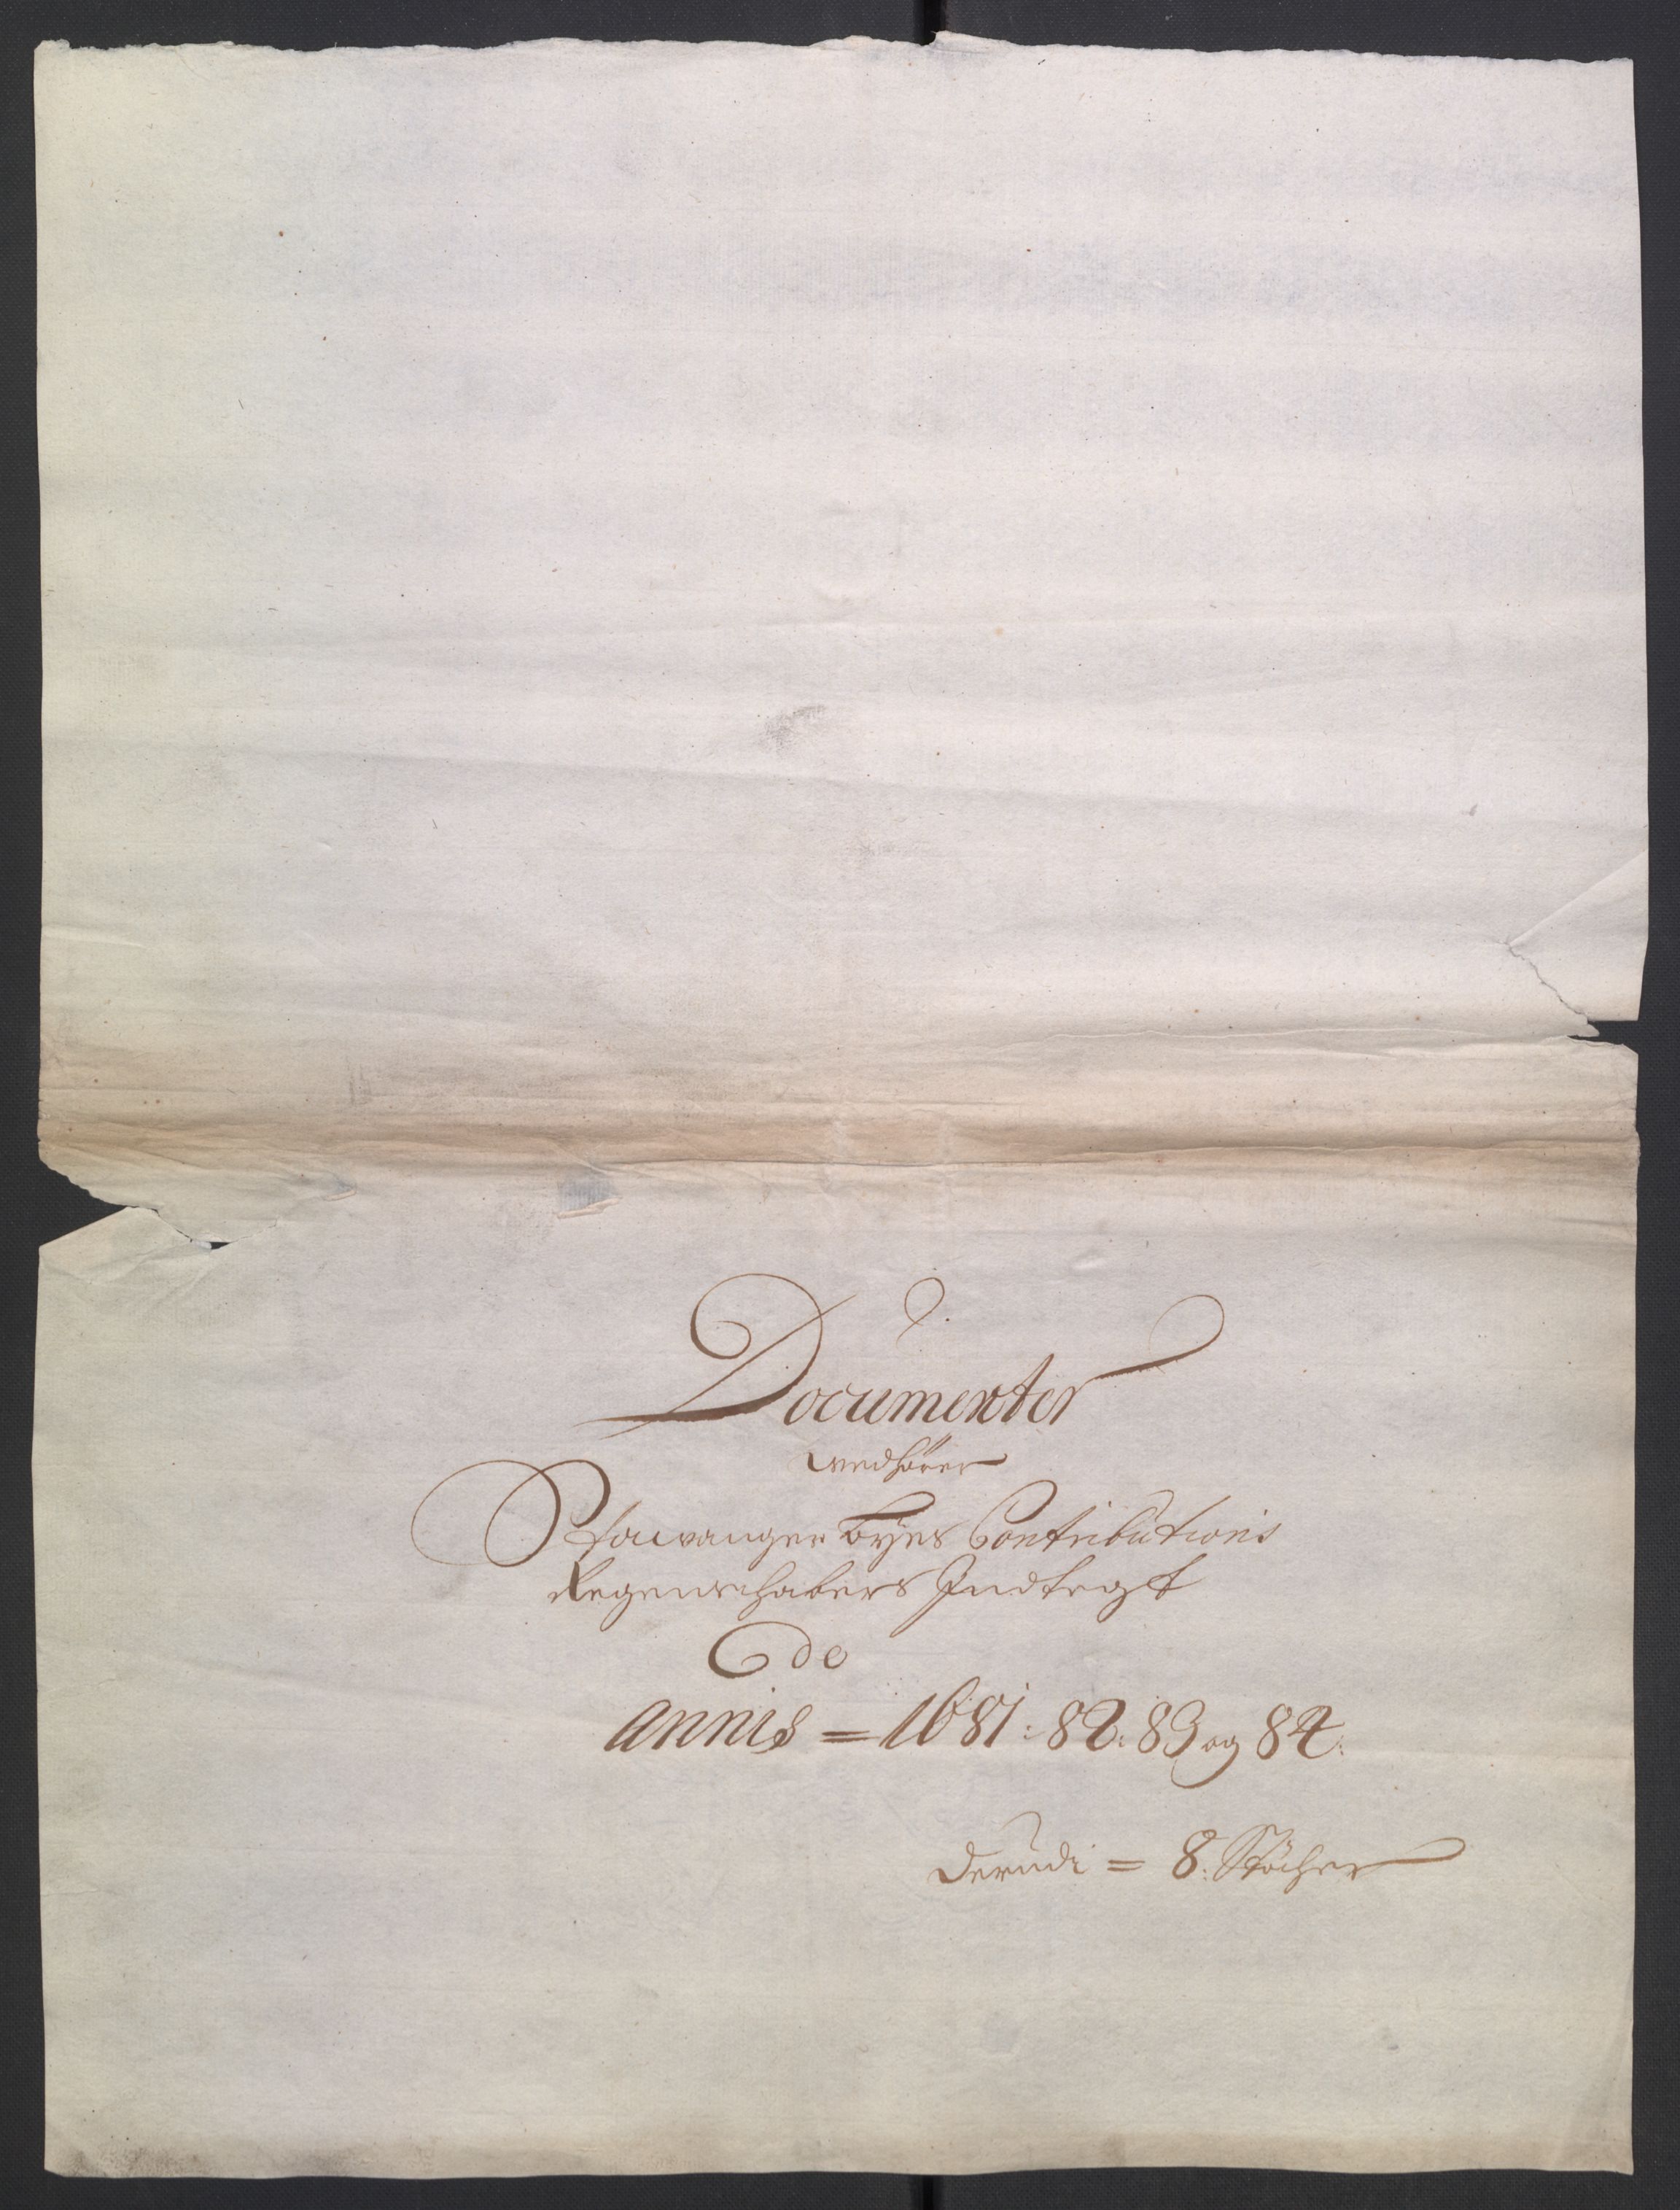 Documenter
Wedhörer
Stawanger Byes Contributions
Regenschabers Indtegt
de
annis = 1681: 82: 83 og 84:
derudi = 8: Stöcher